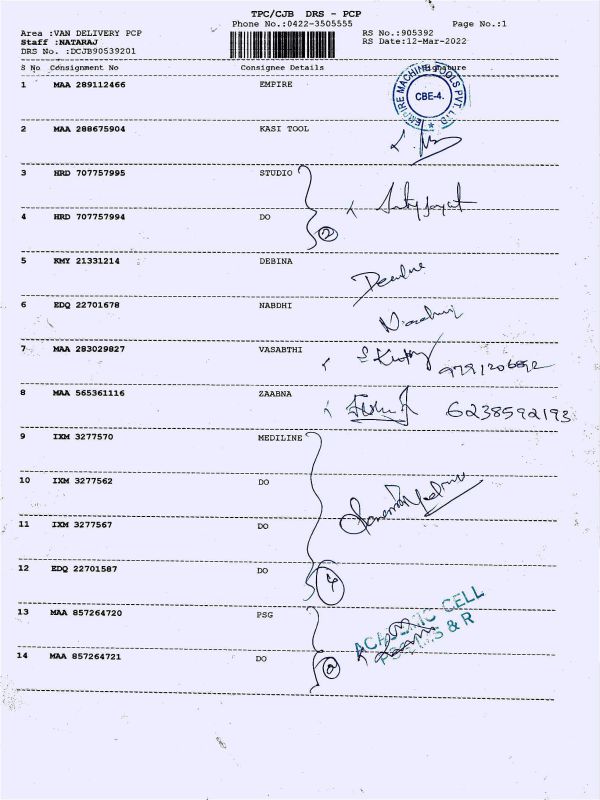 TPC/CJB DRS - PCP
Phone No.:0422-3505555 Page No.:1
Area :VAN DELIVERY PCP RS No.:905392
Staff :NATARAJ RS Date:12-Mar-2022
DRS No. :DCJB90539201
S No Consignment No Consignee Details Signature
1 MAA 289112466 EMPIRE
EMPIRE MACHINE TOOLS PVT. LTD
CBE-4.
2 MAA 288675904 KASI TOOL
3 HRD 707757995 STUDIO
4 HRD 707757994 DO
2
5 KMY 21331214 DEBINA
6 EDQ 22701678 NABDHI
7 MAA 283029827 VASABTHI
8 MAA 565361116 ZAABNA 6238592193
9 IXM 3277570 MEDILINE
10 IXM 3277562 DO
11 IXM 3277567 DO
12 EDQ 22701587 DO
4
13 MAA 857264720 PSG
ACADEMIC CELL
& R
14 MAA 857264721 DO
2